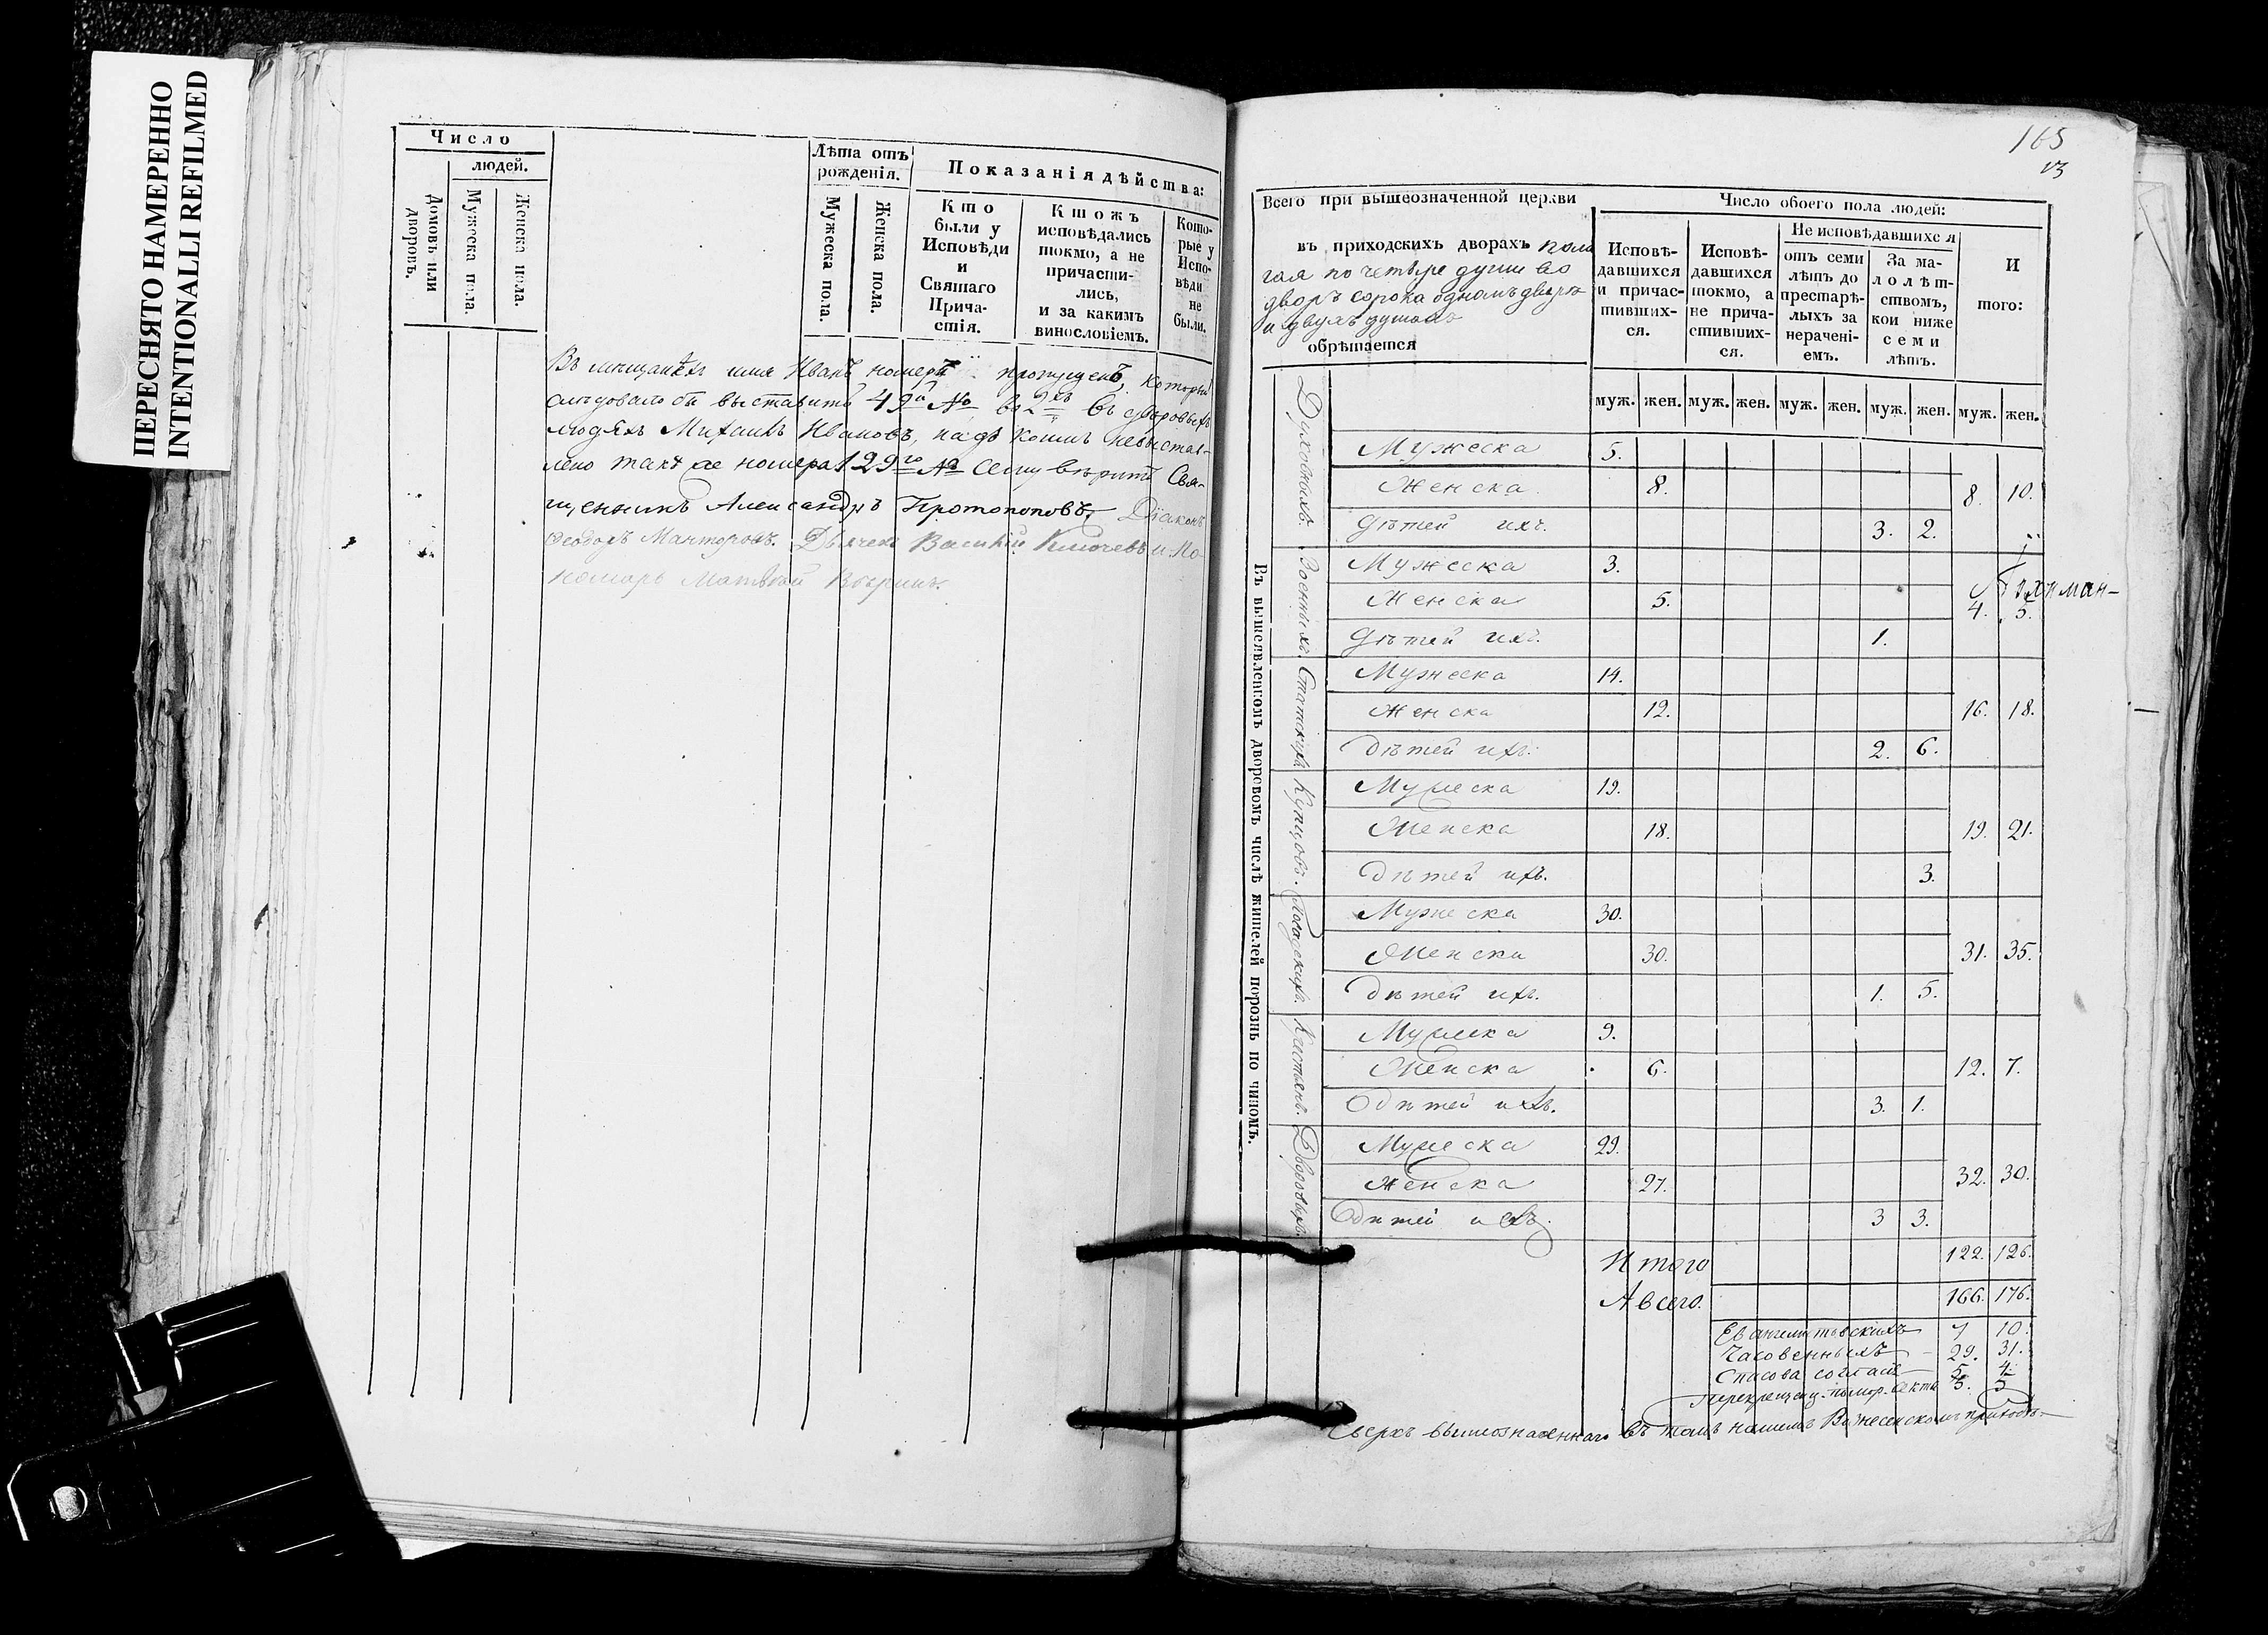 ПЕРЕСНЯТО НАМЕРЕННО
INTENTIONALLI REFILMED
Число
людей.
Домовъ или дворовъ.
Мужеска пола.
Женска пола.
Лѣта отъ рожденія.
Мужеска пола.
Женска пола.
Показанія дѣйства:
Кто были у Исповѣди и Святаго Причастія.
Ктожъ исповѣдались токмо, а не причастились, и за какимъ винословіемъ.
Которые у Исповѣди не были.
Въ мѣщанѣхъ имя Иванъ номеръ пропущенъ, который
слѣдовало бы выставить 49й № во 2хъ въ дворовыхъ
людяхъ Михаилъ Ивановъ, надъ коимъ невыстав-
лено такъ же номера 129го № Сему вѣрить Свя-
щенникъ Александръ Протопоповъ, Діаконъ
Ѳеодоръ Манторовъ. Дьячекъ Василій Ключевъ и По-
номарь Матвѣй
165
13
Всего при вышеозначенной церкви
въ приходскихъ дворахъ пола
гая по четыре души во
дворъ сорока одномъ дворѣ
и двухъ душахъ
обрѣтается
Число обоего пола людей:
Исповѣдавшихся и причастившихся.
Исповѣдавшихся токмо, а не причастившихся.
Не исповѣдавшихся
отъ семи лѣтъ до престарѣлыхъ за нераченіемъ.
За малолѣтствомъ, кои ниже семи лѣтъ.
И того:
муж. жен. муж. жен. муж. жен. муж. жен. муж. жен.
Въ вышеявленномъ дворовомъ числѣ жителей порознь по чиномъ.
Духовныхъ.
Мужеска 5.
Женска 8. 8. 10.
Дѣтей ихъ. 3. 2.
Военныхъ.
Мужеска 3.
Женска 5. 4. 5.
Дѣтей ихъ. 1.
Статскихъ
Мужеска 14.
Женска 12. 16. 18.
Дѣтей ихъ. 2. 6.
Купцовъ.
Мужеска 19.
Женска 18. 19. 21.
Дѣтей ихъ. 3.
Посадскихъ.
Мужеска 30.
Женска 30. 31. 35.
Дѣтей ихъ. 1. 5.
Крестьянъ.
Мужеска 9.
Женска 6. 12. 7.
Дѣтей ихъ. 3. 1.
Дворовыхъ.
Мужеска 29.
Женска 27. 32. 30.
Дѣтей ихъ. 3 3.
Итого 122. 126.
А всего. 166. 176.
10.
Часовенныхъ 29. 31.
Спасова согласія 5. 4.
Перекрещен. помор. секты 5. 5
Сверхъ вышеозначеннаго въ томъ нашемъ Вознесенскомъ приходѣ